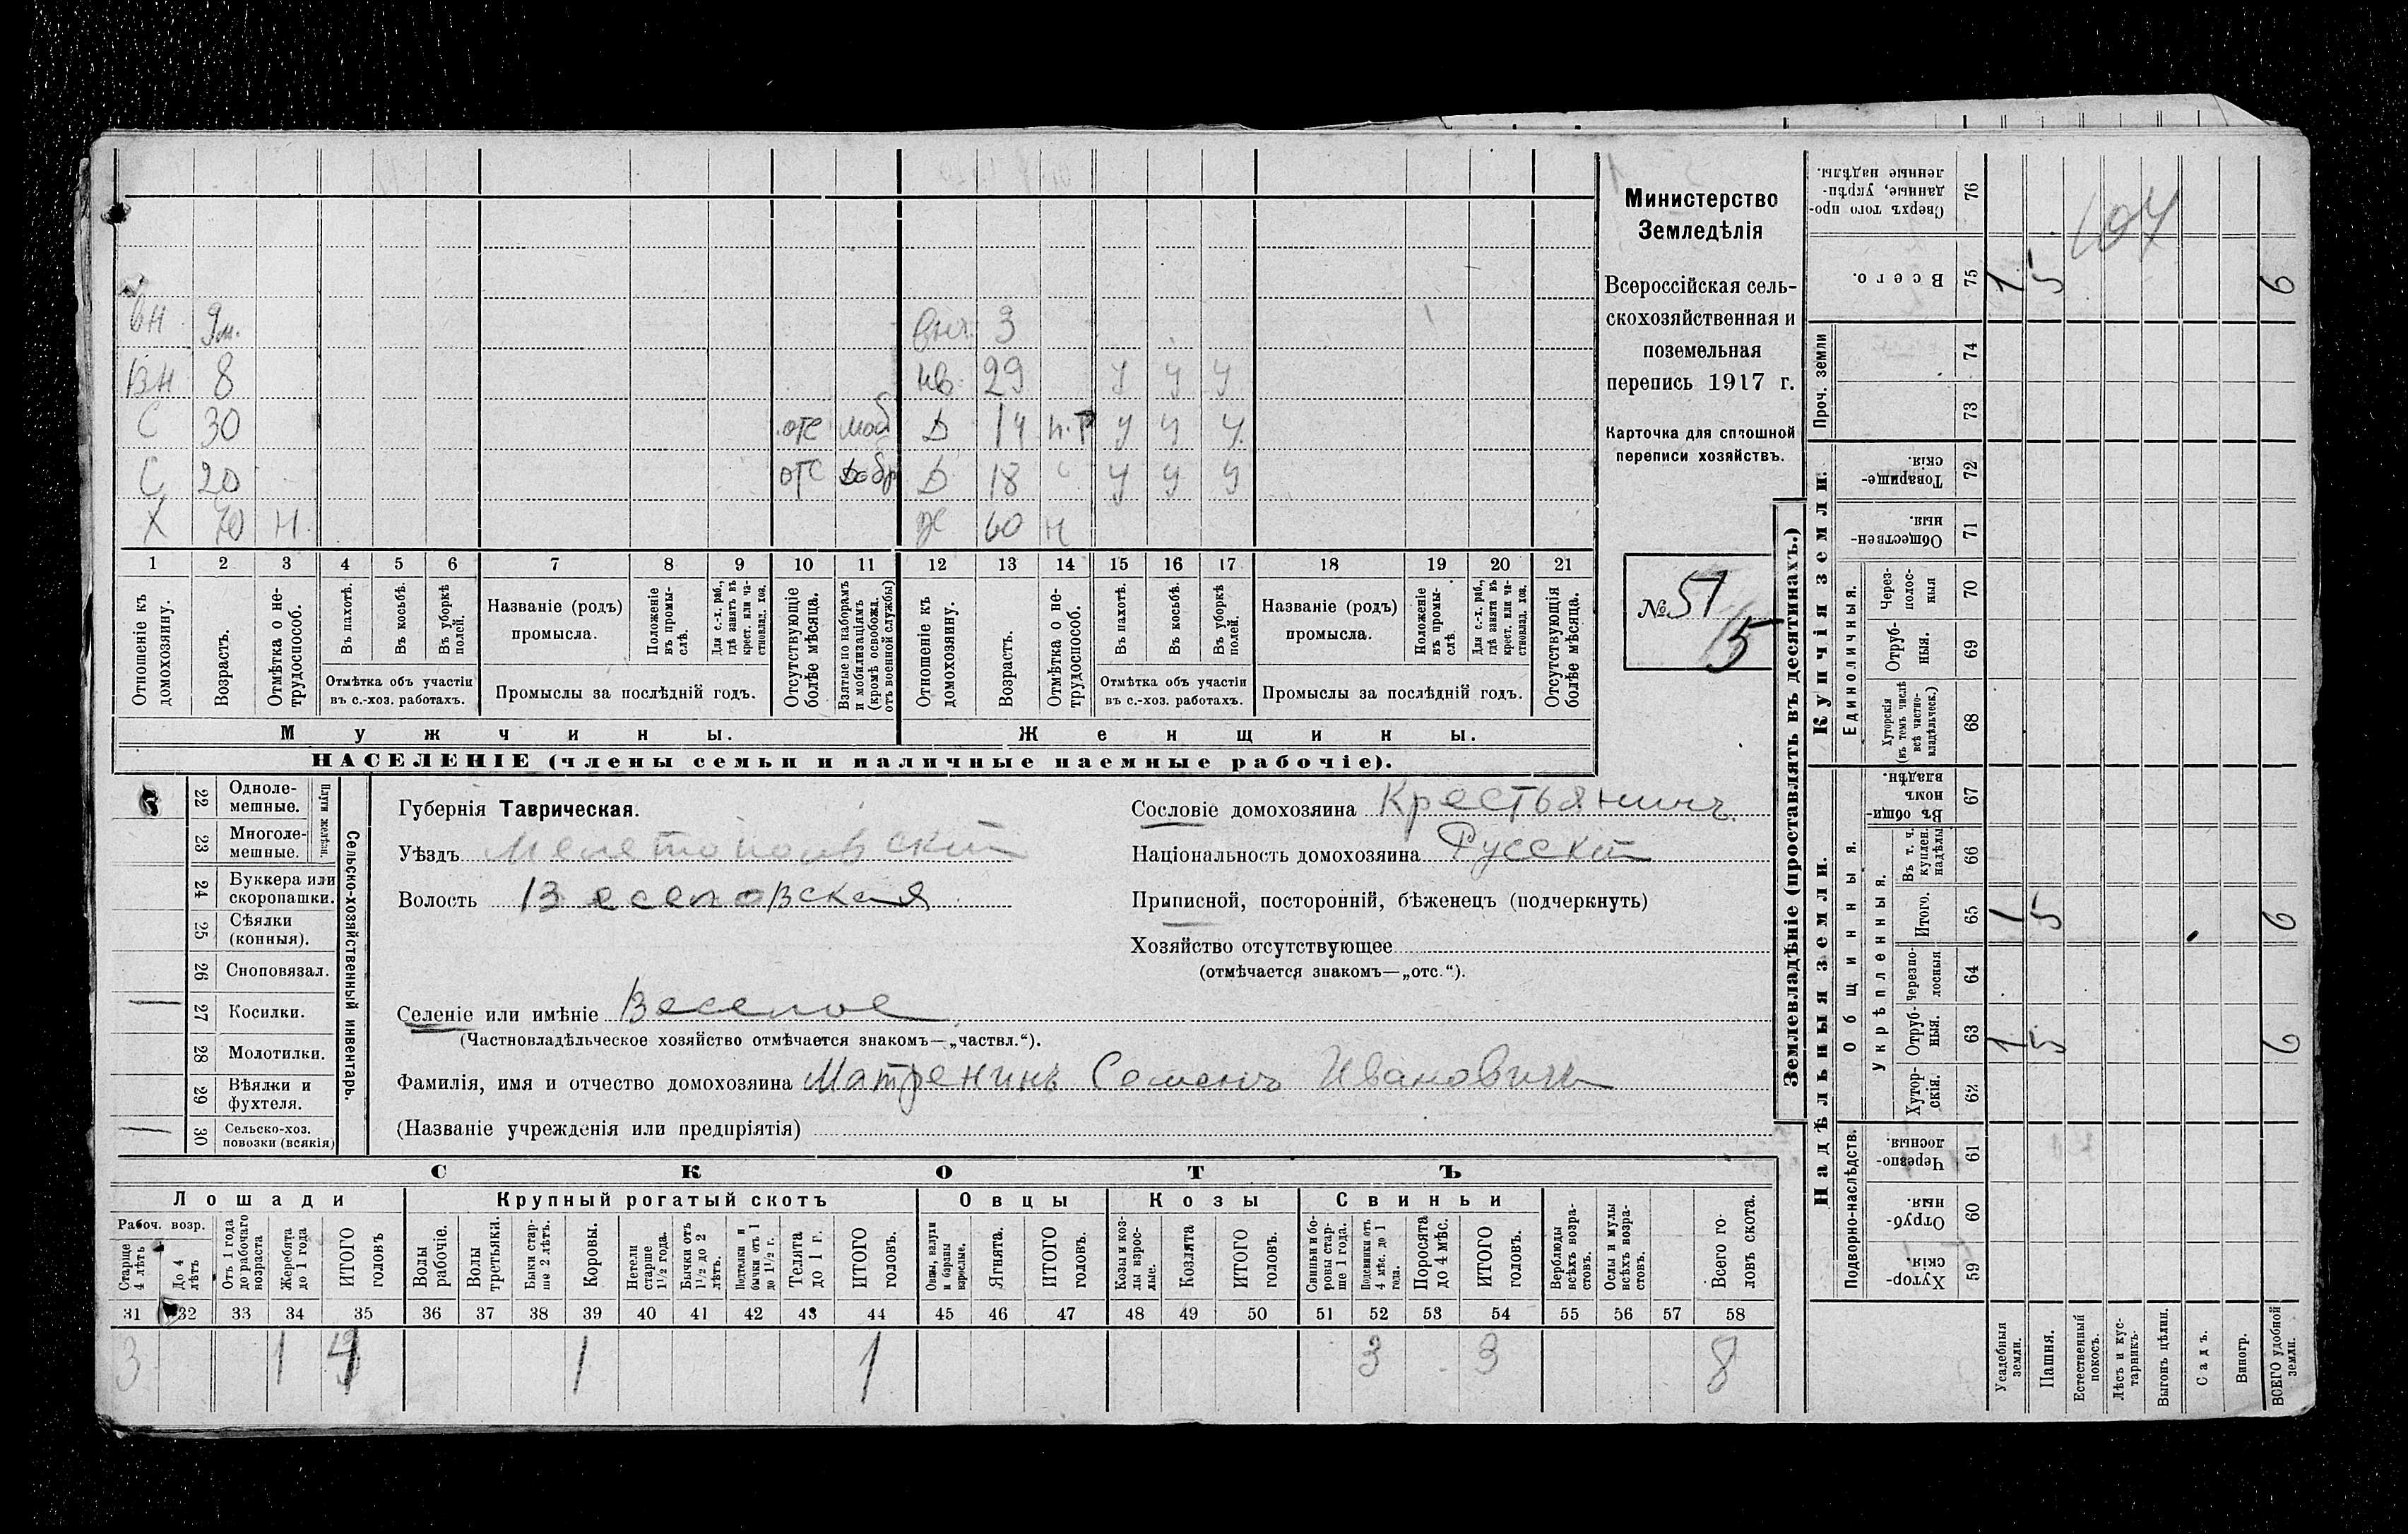 вн 9м. вн. 3
Вн 8 нв. 29 У У У
С 30 отс моб Д 14 п.т У У У
С 20 отс Добр Д 18 У У У
Х 70 Н Ж 60 Н
1 2 3 4 5 6 7 8 9 10 11 12 13 14 15 16 17 18 19 20 21
Отношеніе къ домохозяину.
Возрастъ.
Отмѣтка о нетрудоспособ.
Въ пахотѣ.
Въ косьбѣ.
Въ уборкѣ полей.
Отмѣтка объ участіи
въ с.-хоз. работахъ.
Названіе (родъ)
промысла.
Положеніе въ промыслѣ.
Для с.-х. раб., гдѣ занятъ въ крест. или частновлад. хоз.
Промыслы за послѣдній годъ.
Отсутствующіе болѣе мѣсяца.
Взятые по наборамъ и мобилизаціямъ (кромѣ освобожд. отъ военной службы)
Отношеніе къ домохозяину.
Возрастъ.
Отмѣтка о нетрудоспособ.
Въ пахотѣ.
Въ косьбѣ.
Въ уборкѣ полей.
Отмѣтка объ участіи
въ с.-хоз. работахъ.
Названіе (родъ)
промысла.
Положеніе въ промыслѣ.
Для с.-х. раб., гдѣ занята въ крест. или частновлад. хоз.
Промыслы за послѣдній годъ.
Отсутствующія болѣе мѣсяца.
Мужчины. Женщины.
НАСЕЛЕНІЕ (члены семьи и наличные наемные рабочіе).
Министерство
Земледѣлія
Всероссійская сель-
скохозяйственная и
поземельная
перепись 1917 г.
Карточка для сплошной
переписи хозяйствъ.
№ 51
15
22 Одноле-
мешные.
23 Многоле-
мешные.
Плуги желѣзн.
24 Буккера или
скоропашки.
25 Сѣялки
(конныя).
26 Сноповязал.
27 Косилки.
28 Молотилки.
29 Вѣялки и
фухтеля.
30 Сельско-хоз.
повозки (всякія)
Сельско-хозяйственный инвентарь.
Губернія Таврическая.
Уѣздъ Мелетопольскій
Волость Веселовская
Сословіе домохозяина Крестьянинъ.
Національность домохозяина Русскій
Приписной, посторонній, бѣженецъ (подчеркнуть)
Хозяйство отсутствующее
(отмѣчается знакомъ—„отс.“).
Селеніе или имѣніе Веселое
(Частновладѣльческое хозяйство отмѣчается знакомъ—„частвл.“).
Фамилія, имя и отчество домохозяина Матренинъ Семенъ Ивановичъ
(Названіе учрежденія или предпріятія)
СКОТЪ
Лошади Крупный рогатый скотъ Овцы Козы Свиньи
Рабоч. возр.
Старше 4 лѣтъ
До 4 лѣтъ
Отъ 1 года до рабочаго возраста
Жеребята до 1 года
ИТОГО головъ
Волы рабочіе.
Волы третьяки.
Быки старше 2 лѣтъ.
Коровы.
Нетели старше 1½ года.
Бычки отъ 1½ до 2 лѣтъ.
Подтелки и бычки отъ 1 до 1½ г.
Телята до 1 г.
ИТОГО головъ.
Овцы, валухи и бараны взрослые.
Ягнята.
ИТОГО головъ.
Козы и козлы взрослые.
Козлята
ИТОГО головъ.
Свиньи и боровы старше 1 года.
Подсвинки отъ 4 мѣс. до 1 года.
Поросята до 4 мѣс.
ИТОГО головъ.
Верблюды всѣхъ возрастовъ.
Ослы и мулы всѣхъ возрастовъ.
Всего головъ скота.
31 32 33 34 35 36 37 38 39 40 41 42 43 44 45 46 47 48 49 50 51 52 53 54 55 56 57 58
3 1 4 1 1 3 3 8
Землевладѣніе (проставлять въ десятинахъ.)
Надѣльныя земли. Купчія земли.
Подворно-наслѣдств.
Общинныя.
Укрѣпленныя.
Единоличныя.
Проч. земли
Сверхъ того проданные, укрѣпленные надѣлы. 76
Всего. 75 1 5 6
107
74
73
Товарищескія. 72
Общественныя. 71
Черезполосныя 70
Отрубныя. 69
Хуторскія (въ темъ числѣ всѣ частновладѣльческ.) 68
Въ общинномъ владѣн. 67
Въ т. ч. куплен. надѣлы 66
Итого. 65 1 5 6
Черезполосныя 64
Отрубныя. 63 1 5 6
Хуторскія. 62
Черезполосныя. 61
Отрубныя. 60
Хуторскія. 59
Усадебныя земли.
Пашня.
Естественный покосъ.
Лѣсъ и кустарникъ.
Выгонъ цѣлин.
Садъ.
Виногр.
ВСЕГО удобной земли.